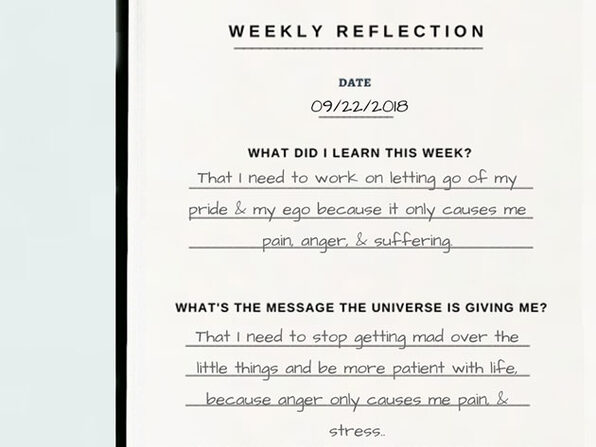 WEEKLY REFLECTION
DATE
09/22/2018
WHAT DID I LEARN THIS WEEK?
That I need to work on letting go of my
pride & my ego because it only causes me
pain, anger, & suffering.
WHAT'S THE MESSAGE THE UNIVERSE IS GIVING ME?
That I need to stop getting mad over the
little things and be more patient with life,
because anger only causes me pain, &
stress..